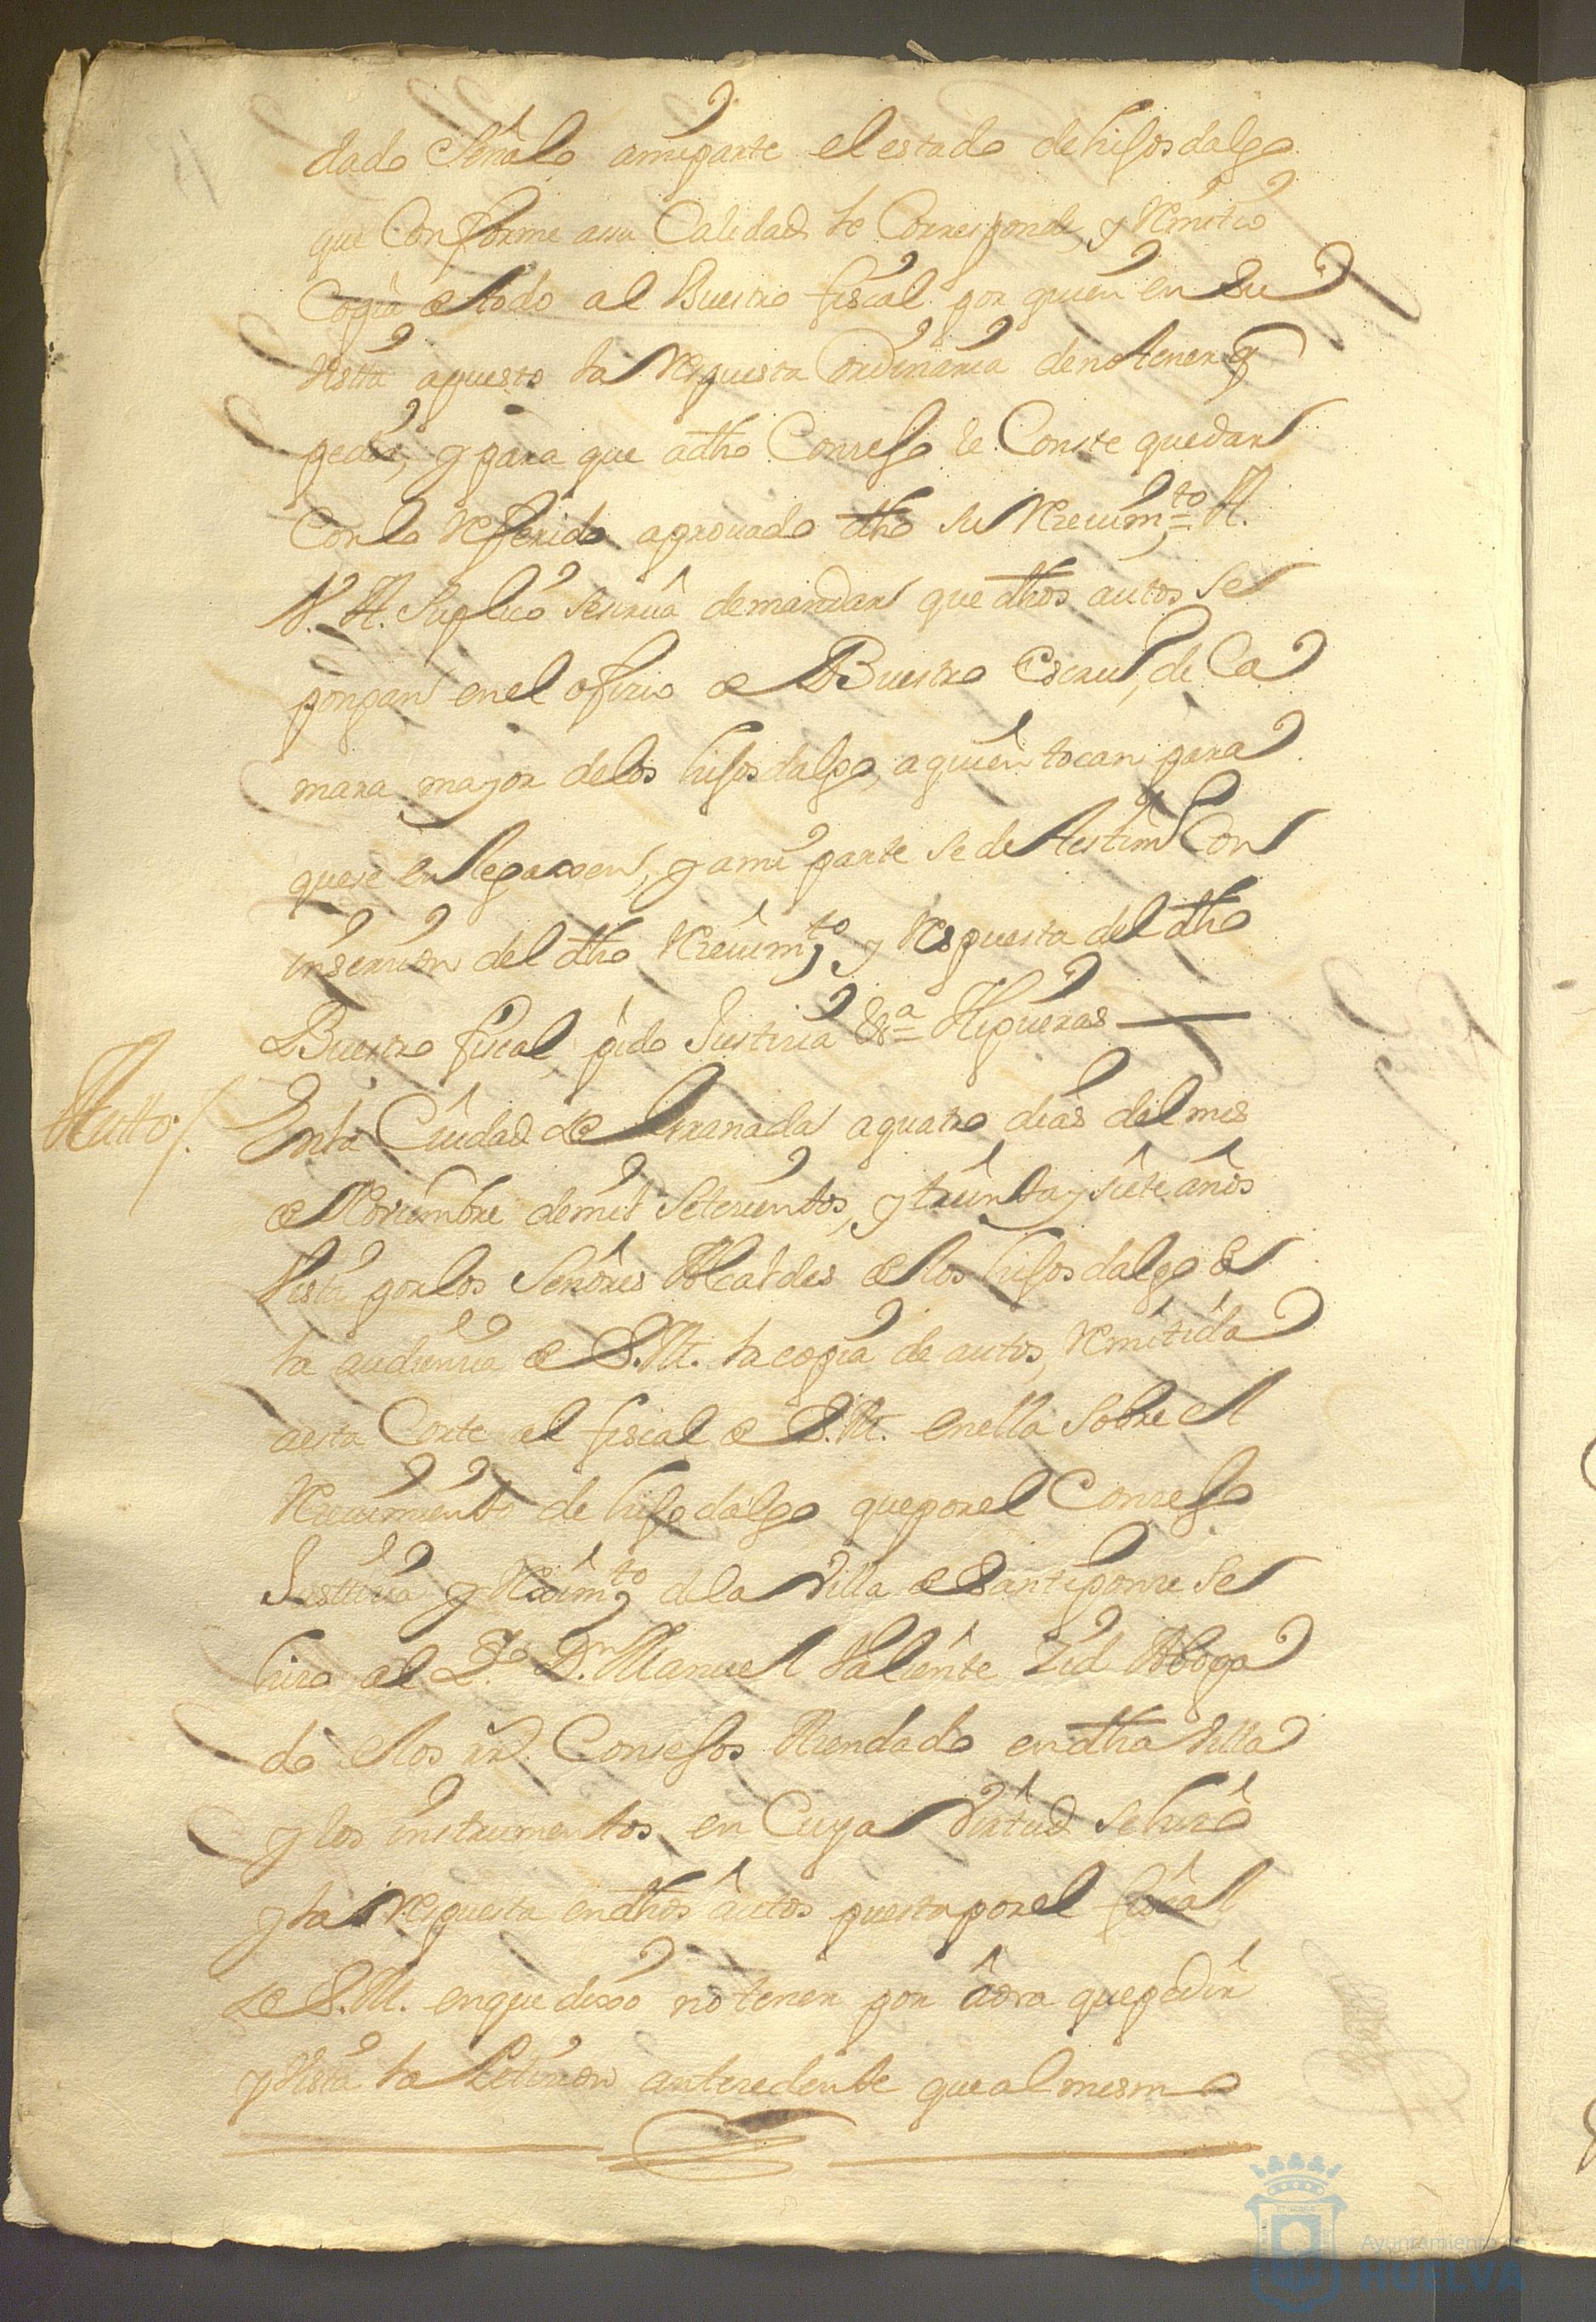 dado señalo amiparte el estado dehijosdalgo
que Conforme asu Calidad le Corresponde, y Remitio
Copia de todo al Buestro fiscal por quien en su
Vista apuesto la Respuesta ordinaria de no tener q
pedir, y para que adho Consejo le Conste quedar
Con lo Referido aprouado dho su Recium.to A
V. A. Suplico se sirua demandar que dhos autos se
pongan en el ofizio de Buestro Escriu, de Ca
mara major delos hijosdalgo, aquien tocan para
que se enlegaxen, y ami parte se de testim Con
inserzion del dho Recium.to y Respuesta del dho
Buestro fiscal, pido Justizia &a Higueras
Autto /.
Enla Ciudad de Granada aquatro dias del mes
de Noviembre demil Setezientos, y treinta y siete años
Vista por los Señores Alcaldes de los hijosdalgo de
la audienzia de S.M. la copia de autos, Remitida
aesta Corte al fiscal de S.M. en ella sobre el
Reciuimiento de hijodalgo que por el Consejo
Justizia y Rexim.to dela Villa de Santiponze se
hizo al L.do D.n Manuel Valiente Zid Aboga
do de los Rs. Consejos Hazendado en dha Villa
y los instrumentos en Cuya Virtud se hizo
y la Respuesta en dhos autos puesta por el fiscal
de S.M. en que dixo no tener por aora que pedir
y Vista la Petizion antezedente que al mismo
Ayuntamiento de
HUELVA